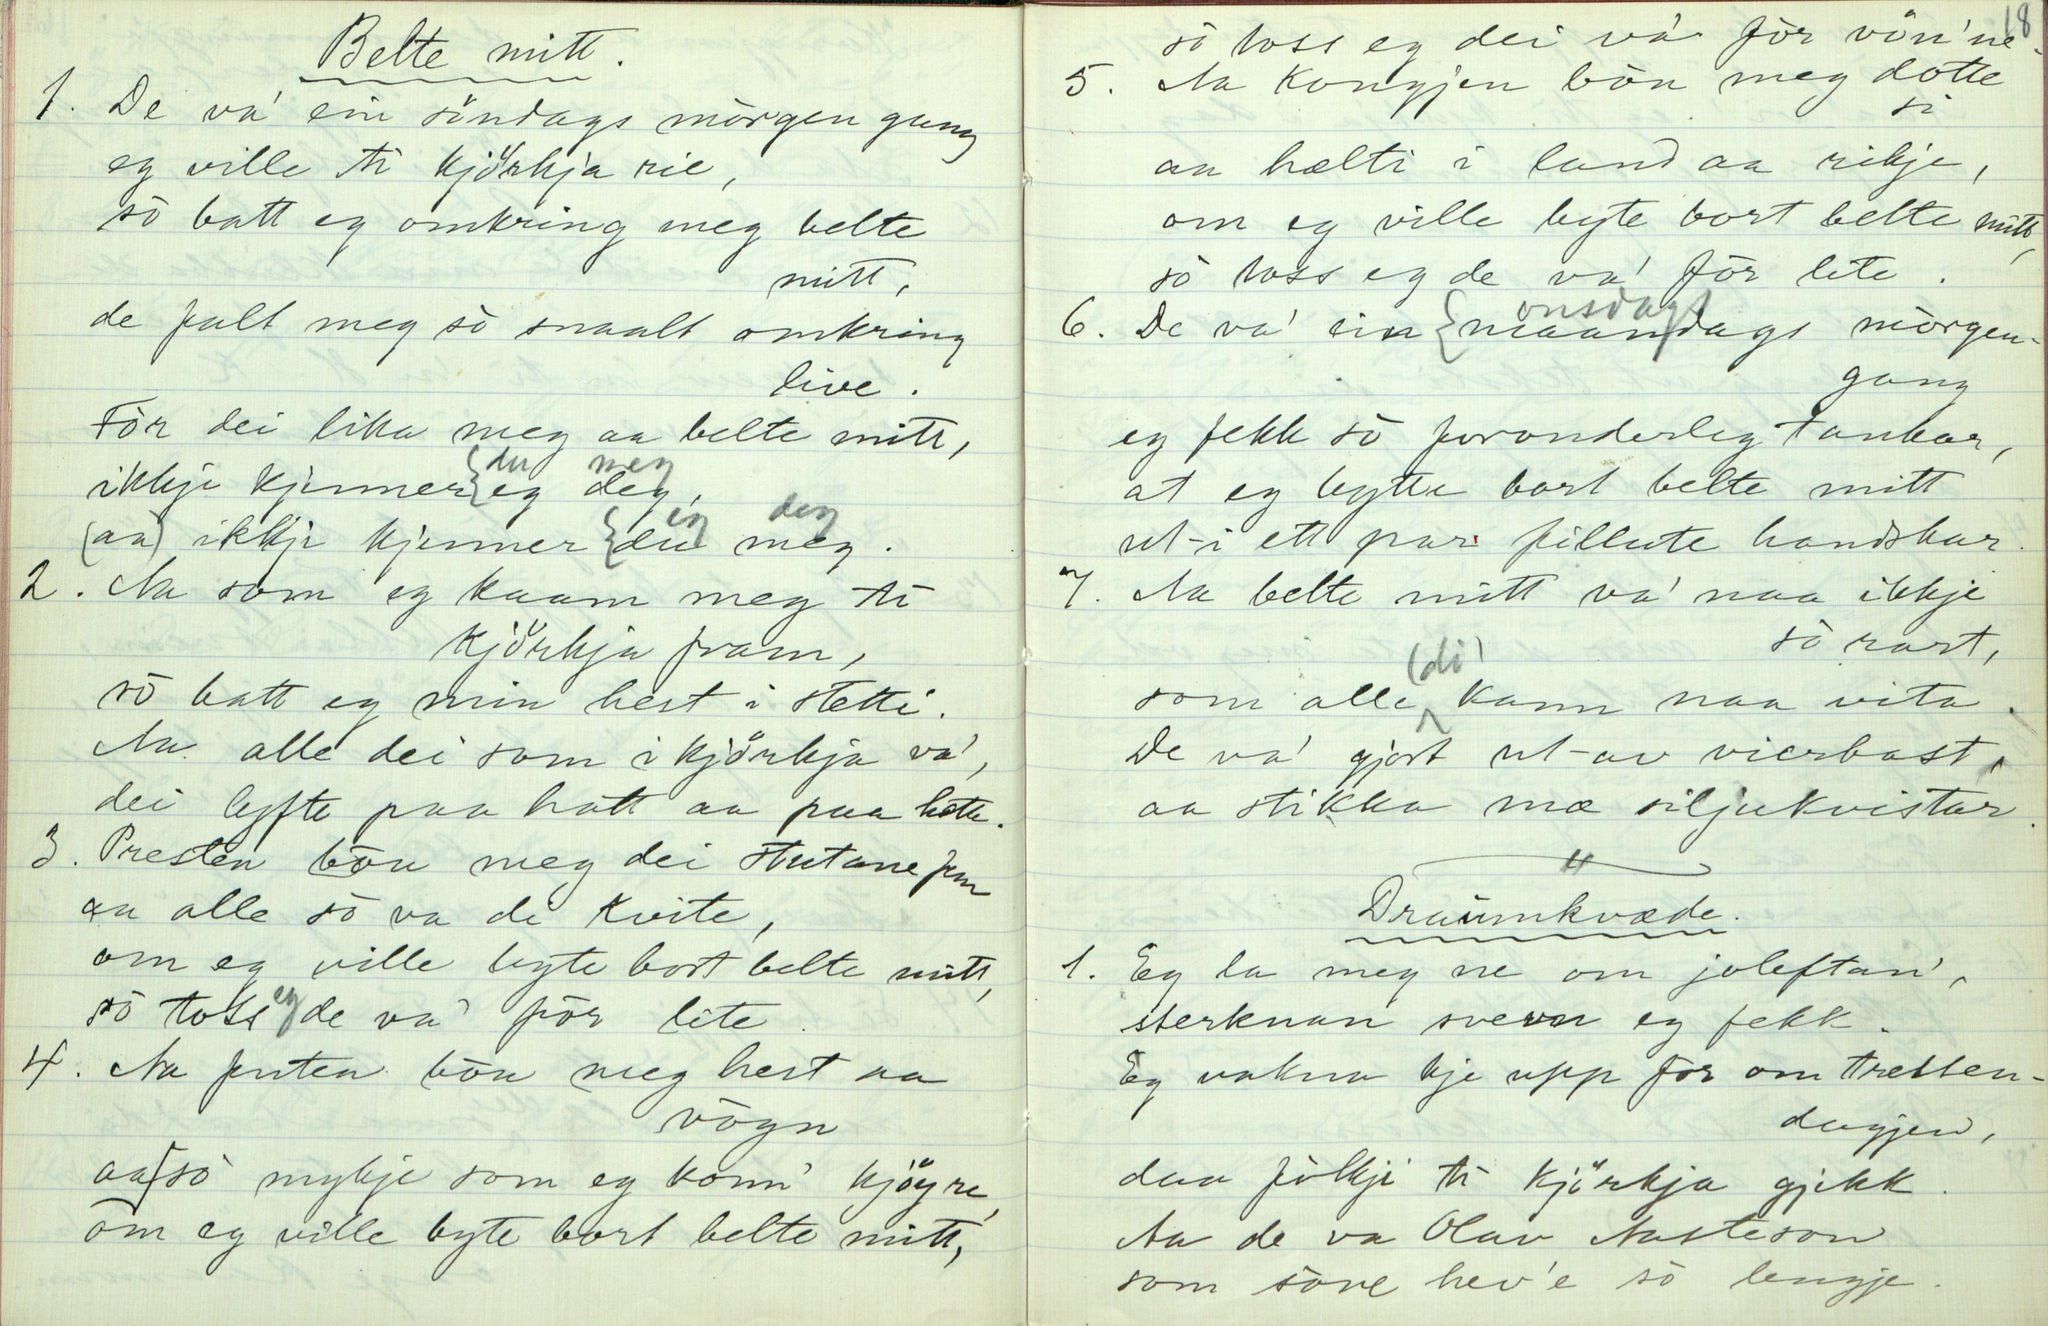 Belte mitt.
1. De va' ein söndags mòrgen gung
eg ville ti kjörkja rie,
sò batt eg omkring meg belte
mitt,
de falt meg sò snaalt omkring
live.
Fòr dei lika meg aa belte mitt,
du meg
ikkje kjenner { eg deg,
eg deg
(aa) ikkje kjenner { du meg.
2. Aa som eg kaam meg ti
kjörkja fram,
sò batt eg min hest i stetti.
Aa alle dei som i kjörkja va',
dei lyfte paa hatt aa paa hette.
3. Presten bòu meg dei stutane fem
aa alle sò va de kvite,
om eg ville byte bort belte mitt,
sò toss eg de va' fòr lite.
4. Aa futen bòu meg hest aa
vògn
aa sò mykje som eg konn' kjöyre,
om eg ville byte bort belte mitt,
18
sò toss eg dei va' fòr vòn'ne.
5. Aa Kongjen bòu meg dotte
si
aa hælti i land aa rikje,
om eg ville byte bort belte mitt,
sò toss eg de va' fòr lite.
onsdags
6. De va' ein { maandags mòrgen-
gang
eg fekk sò foronderleg tankar,
at eg bytte bort belte mitt
ut-i ett par fillute handskar.
7. Aa belte mitt va' naa ikkje
sò rart,
(di)
som alle kann naa vita.
De va' gjort ut-av vierbast,
aa stikka mæ siljukvistar.
Draumkvæde.
1. Eg la meg ne om joleftan',
sterknan svevn eg fekk.
Eg vakna kje upp fòr om tretten-
dagjen,
daa fòlkji ti kjörkja gjekk.
Aa de va Olav Aasteson
som sòve hev'e sò lengje.